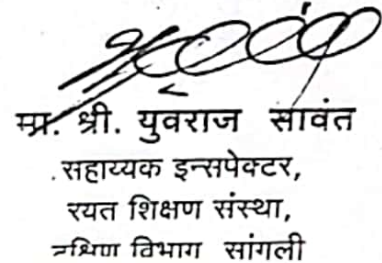 प्रा. श्री. युवराज सावंत
सहाय्यक इन्सपेक्टर,
रयत शिक्षण संस्था,
दक्षिण विभाग सांगली